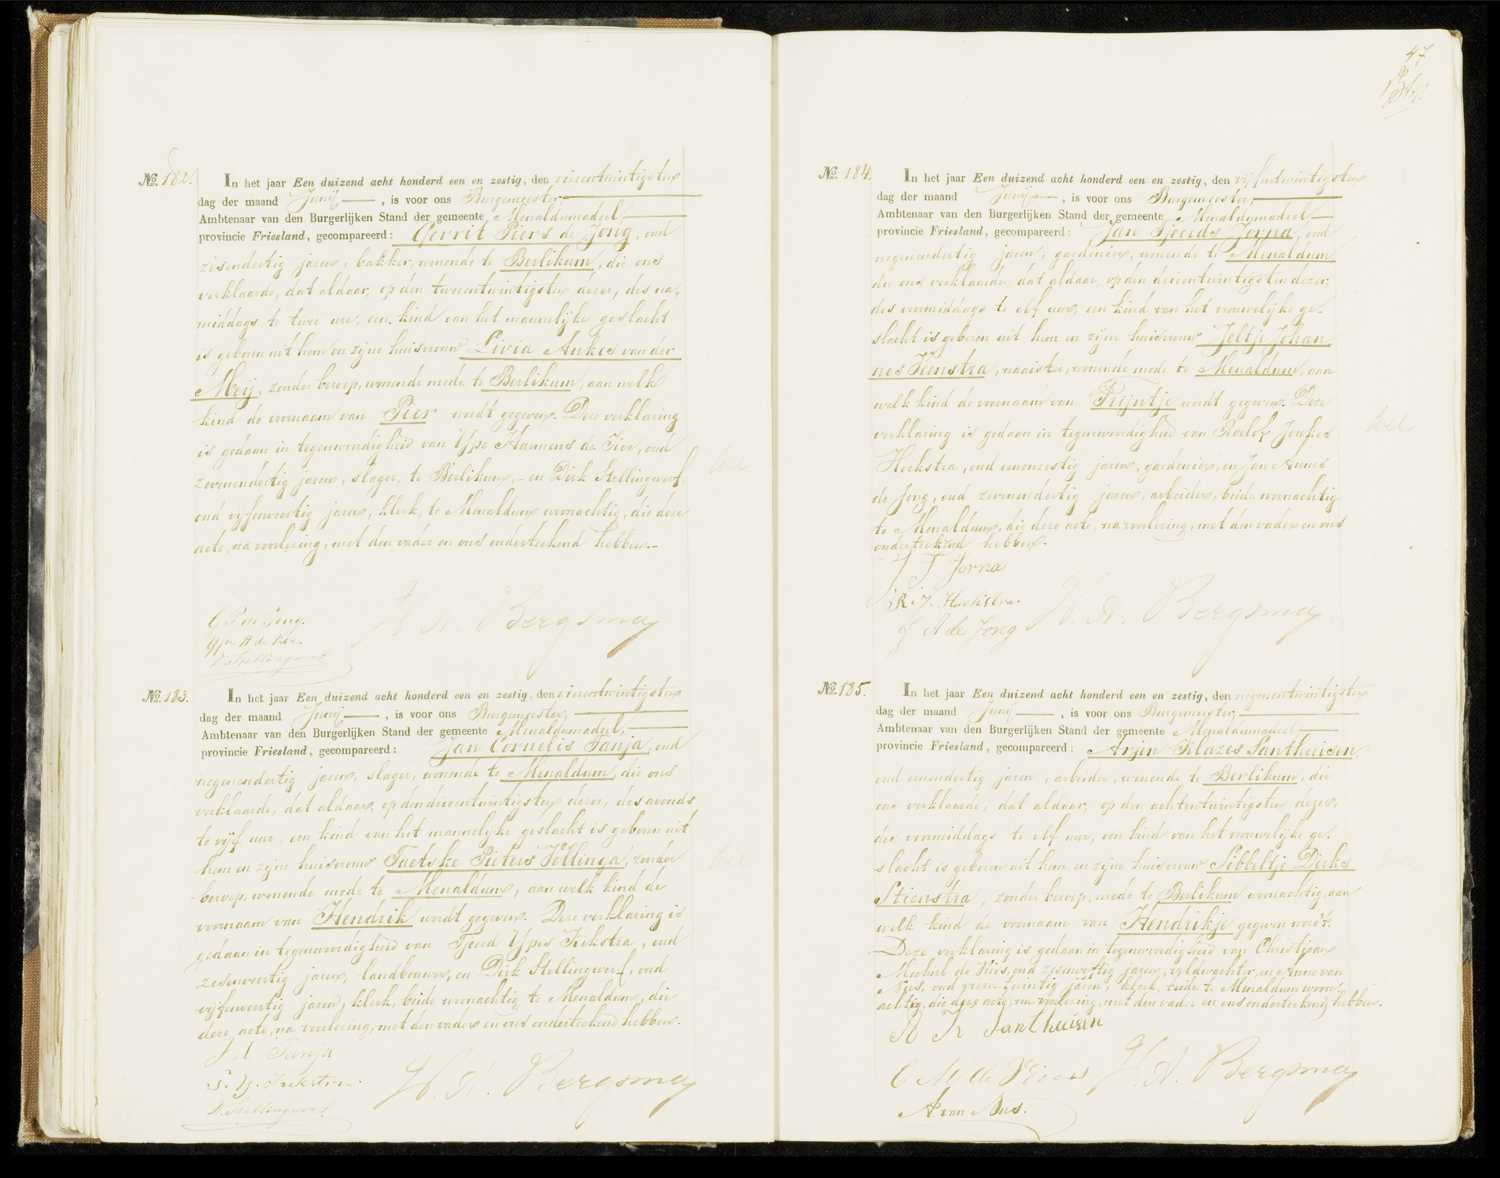 47
№ 182.
In het jaar Een duizend acht honderd een en zestig, den vierentwintigsten
dag der maand Junij, is voor ons Burgemeester,
Ambtenaar van den Burgerlijken Stand der gemeente Menaldumadeel,
provincie Friesland, gecompareerd: Gerrit Piers de Jong, oud
zesendertig jaren, bakker, wonende te Berlikum, die ons
verklaarde, dat aldaar, op den tweeentwintigsten dezer, des na-
middags te twee ure, een kind van het mannelijke geslacht
is geboren uit hem en zijne huisvrouw Livia Ankes van der
Meij, zonder beroep, wonende mede te Berlikum, aan welk
kind de voornaam van Pier wordt gegeven. Deze verklaring
is gedaan in tegenwoordigheid van Ype Hammens de Vries, oud
zevenendertig jaren, slager, te Berlikum, en Dirk Stellingwerf,
oud vijfenveertig jaren, klerk, te Menaldum woonachtig, die deze
acte, na voorlezing, met den vader en ons onderteekend hebben.
G P de Jong.
D Stellingwerf
H. A. Bergsma
№ 183.
In het jaar Een duizend acht honderd een en zestig, den vierentwintigsten
dag der maand Junij, is voor ons Burgemeester,
Ambtenaar van den Burgerlijken Stand der gemeente Menaldumadeel,
provincie Friesland, gecompareerd: Jan Cornelis Tanja, oud
negenendertig jaren, slager, wonende te Menaldum, die ons
verklaarde, dat aldaar, op den drieentwintigsten dezer, des avonds
te vijf ure, een kind van het mannelijke geslacht is geboren uit
hem en zijne huisvrouw Taetske Pieters Jellinga, zonder
beroep, wonende mede te Menaldum, aan welk kind de
voornaam van Hendrik wordt gegeven. Deze verklaring is
gedaan in tegenwoordigheid van Tjeerd Ypes Hoekstra, oud
zesenveertig jaren, landbouwer, en Dirk Stellingwerf, oud
vijfenveertig jaren, klerk, beide woonachtig te Menaldum, die
deze acte, na voorlezing, met den vader en ons onderteekend hebben.
Tanja
D. Stellingwerf
H. A. Bergsma
№ 184.
In het jaar Een duizend acht honderd een en zestig, den vijfentwintigsten
dag der maand Junij, is voor ons Burgemeester,
Ambtenaar van den Burgerlijken Stand der gemeente Menaldumadeel,
provincie Friesland, gecompareerd: Jan Sjoerds Jorna, oud
negenendertig jaren, gardenier, wonende te Menaldum
die ons verklaarde, dat aldaar, op den drieentwintigsten dezer,
des voormiddags te elf ure, een kind van het vrouwelijke ge-
slacht is geboren uit hem en zijne huisvrouw Jeltje Johan
nes Kienstra, naaister, wonende mede te Menaldum, aan
welk kind de voornaam van Trijntje wordt gegeven. Deze
verklaring is gedaan in tegenwoordigheid van Roelof Joukes
Hoekstra, oud eenenzestig jaren, gardenier, en Jan Annes
de Jong, oud zevenendertig jaren, arbeider, beide woonachtig
te Menaldum, die deze acte, na voorlezing, met den vader en ons
onderteekend hebben.
J S Jorna
R. J. Hoekstra.
J A de Jong
H. A. Bergsma
№ 185.
In het jaar Een duizend acht honderd een en zestig, den negenentwintigsten
dag der maand Junij, is voor ons Burgemeester,
Ambtenaar van den Burgerlijken Stand der gemeente Menaldumadeel
provincie Friesland, gecompareerd: Arjen Klazes Santhuisen,
oud eenendertig jaren, arbeider, wonende te Berlikum, die
ons verklaarde, dat aldaar, op den achtentwintigsten dezer,
des voormiddags te elf ure, een kind van het vrouwelijke ge-
slacht is geboren uit hem en zijne huisvrouw Sibbeltje Dirks
Stienstra, zonder beroep, mede te Berlikum woonachtig, aan
welk kind de voornaam van Hendrikje gegeven wordt.
Deze verklaring is gedaan in tegenwoordigheid van Christiaan
Michiel de Vries, oud zesenveertig jaren, veldwachter, en Anne van
Nes, oud jaren, klerk, beide te Menaldum woon-
achtig, die deze acte, na voorlezing, met den vader en ons onderteekend hebben.
A K Santhuisen
C M de Vries
A. van Nes.
H. A. Bergsma